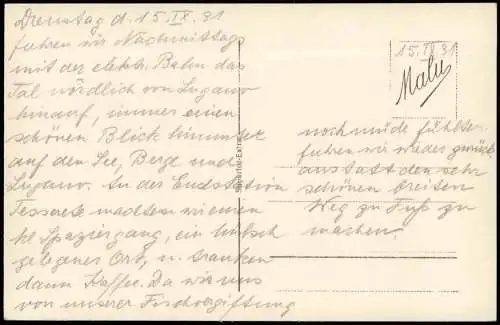 Dienstag d. 15.IX.31
fuhren wir Nachmittags
mit der elektr. Bahn das
Tal nördlich von Lugano
hinauf, immer einen
schönen Blick hinunter
auf den See, Berge und
Lugano. In der Endstation
Tesserete machten wir eine
kl Spaziergang, ein hübsch
gelegener Ort, u. tranken
dann Kaffee. Da wir uns
von unserer Fischvergiftung
15.IX.31
Malu
noch müde fühlten
fuhren wir wieder zurück
anstatt den sehr
schönen breiten
Weg zu Fuß zu
machen.